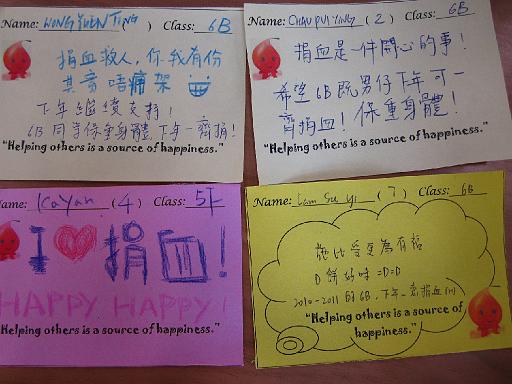 Name: WONG YUEN TING ( ) Class: 6B
捐血救人，你我有份
其實唔痛架
下年繼續支持！
6B同學保重身體，下年一齊捐！
"Helping others is a source of happiness."
Name: CHAU PUI YING ( 2 ) Class: 6B
捐血是一件開心的事！
希望6B既男仔下年可一
齊捐血！保重身體！
"Helping others is a source of happiness."
Name: Ka Yan ( 4 ) Class: 5F
I ♥ 捐血！
HAPPY HAPPY!
"Helping others is a source of happiness."
Name: Lam Su Yi ( 7 ) Class: 6B
施比受更為有福
D餅好味=D=D
2010-2011的6B，下年一起捐血
"Helping others is a source of
happiness."